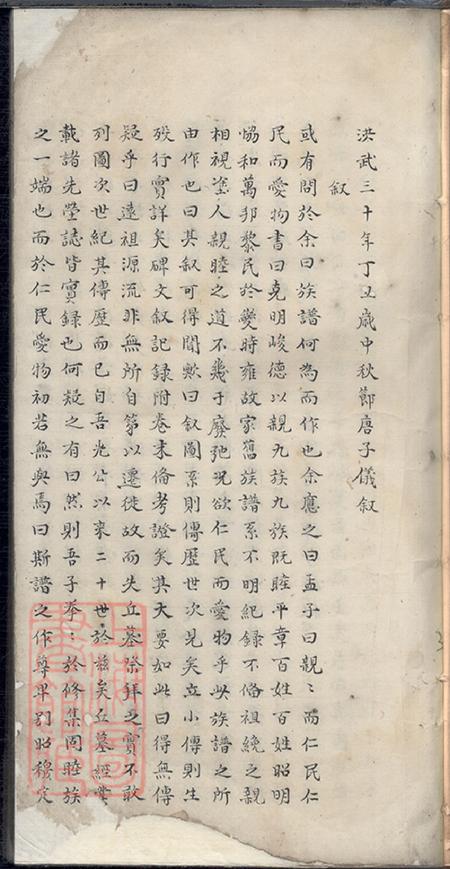 洪武三十年丁丑歲中秋節唐子儀叙
叙
或有問於余曰族譜何為而作也余應之曰孟子曰親〻而仁民仁
民而愛物書曰克明峻德以親九族九族既睦平章百姓百姓昭明
恊和萬邦黎民於變時雍故家舊族譜系不明紀録不脩祖絻之親
相視塗人親睦之道不幾于廢弛况欲仁民而愛物乎此族譜之所
由作也曰其叙可得聞歟曰叙圖系則傳歷世次見矣立小傳則生
殁行實詳矣碑文叙記録附卷末俻考證矣其大要如此曰得無傳
疑乎曰遠祖源流非無所自第以遷徙故而失丘墓祭拜之實不敢
列圖次世紀其傳歷而已自吾光公以來二十世於兹矣丘墓經堂
載諸先塋誌皆實録也何疑之有曰然則吾子拳〻於修集同睦族
之一端也而於仁民愛物初若無與焉曰斯譜之作尊卑别昭穆定